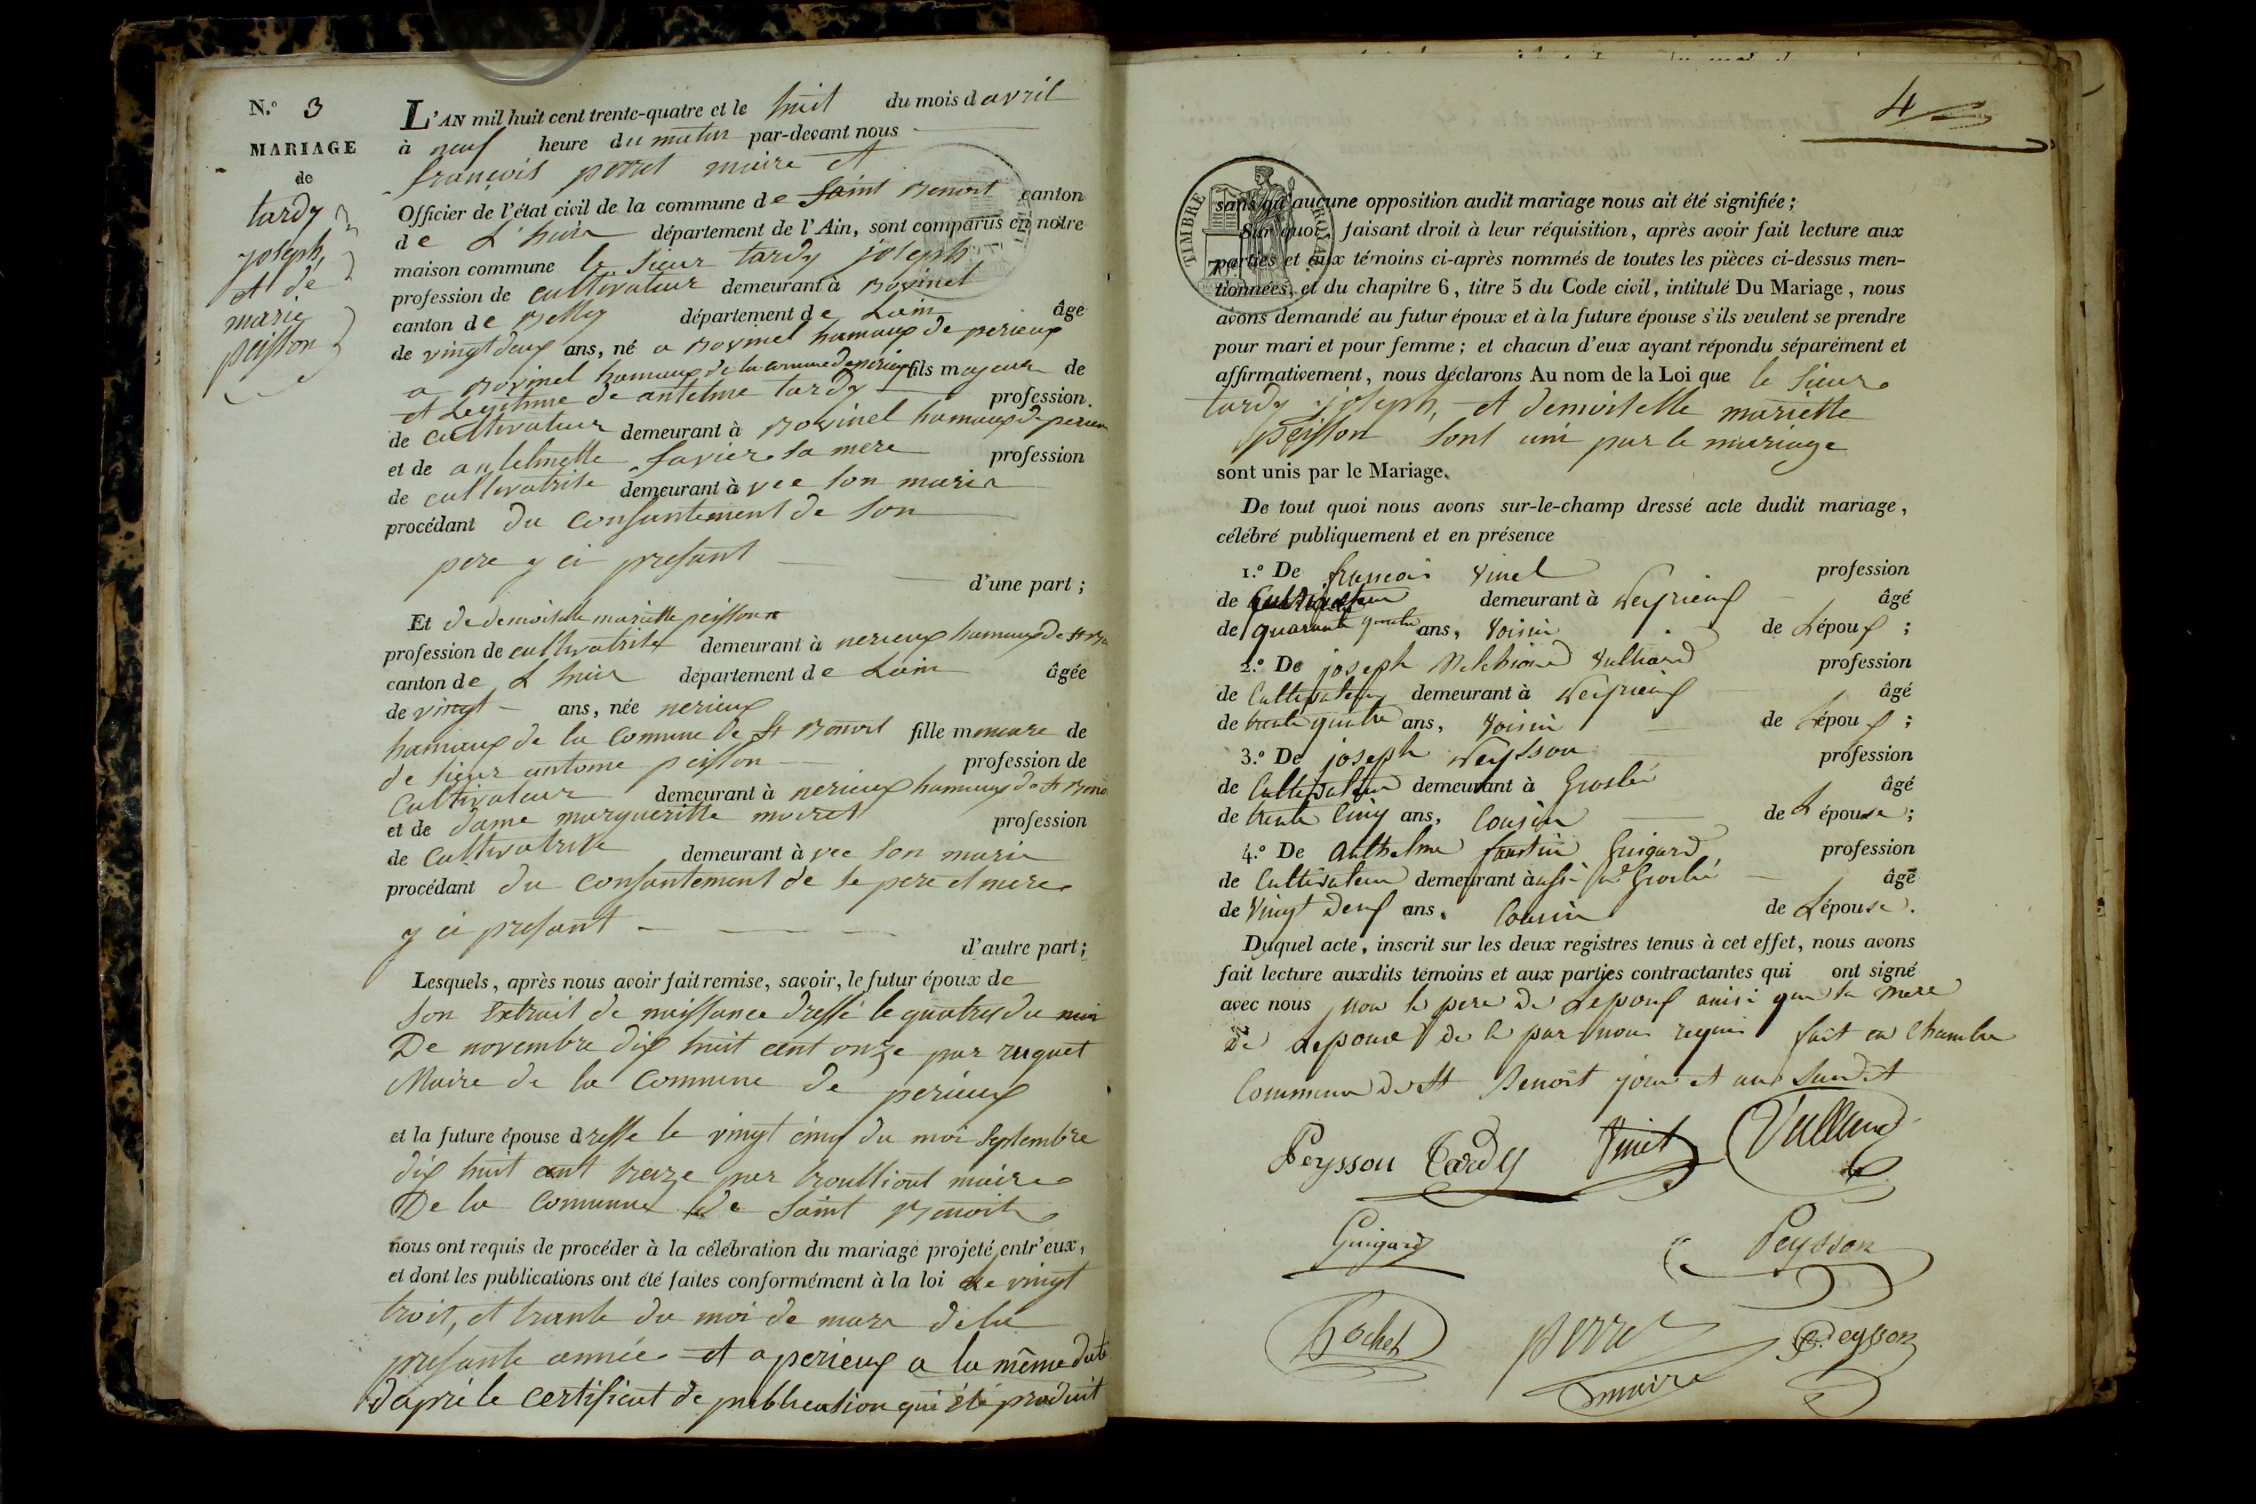 N.º 3
MARIAGE
de
tardy
joseph,
et de
marie
peisson
L'AN mil huit cent trente-quatre et le huit du mois d avril
à neuf heure du matin par-devant nous
françois perret maire et
Officier de l'état civil de la commune de Saint Benoit canton
de L'huis département de l'Ain, sont comparus en notre
maison commune le sieur tardy joseph
profession de cultivateur demeurant à
canton de Belley département de Lain âgé
de vingt deux ans, né a hamaux de perieux
a hamaux de la comune de perieux fils majeur de
et Legitime de antelme tardy profession
de cultivateur demeurant à hamaux de perieux
et de antelmette favier sa mere profession
de cultivatrise demeurant à vec son marie
procédant du consantement de son
pere y ci presant
d'une part ;
Et de demoiselle mariette peisson
profession de cultivatrise demeurant à hamaux de St
canton de L huis département de Lain âgée
de vingt ans, née
hamaux de la comune de St Benoit fille meneure de
de sieur antoine peisson profession de
Cultivateur demeurant à hamaux de St
et de dame margueritte moiret profession
de Cultivatrise demeurant à vec son marie
procédant du consantement de se pere et mere
y ci presant
d'autre part ;
Lesquels, après nous avoir fait remise, savoir, le futur époux de
son Extrait de naissance dressé le quatres du moi
De novembre dix huit cent onze par ruquet
Maire de la Commune de perieux
et la future épouse dresse le vingt cinq du moi Septembre
dix huit cent treize par maire
De la Commune de Saint Benoit
nous ont requis de procéder à la célébration du mariage projeté entr'eux,
et dont les publications ont été faites conformément à la loi le vingt
troit, et trante du moi de mars de la
presante année et a perieux a la même date
daprè le certificat de publication qui été produit
4
TIMBRE ROYAL
sans qu'aucune opposition audit mariage nous ait été signifiée ;
Sur quoi, faisant droit à leur réquisition, après avoir fait lecture aux
parties et aux témoins ci-après nommés de toutes les pièces ci-dessus men-
tionnées, et du chapitre 6, titre 5 du Code civil, intitulé Du Mariage, nous
avons demandé au futur époux et à la future épouse s'ils veulent se prendre
pour mari et pour femme ; et chacun d'eux ayant répondu séparément et
affirmativement, nous déclarons Au nom de la Loi que le sieur
tardy joseph, et demoiselle mariette
peisson sont uni par le mariage
sont unis par le Mariage.
De tout quoi nous avons sur-le-champ dressé acte dudit mariage,
célébré publiquement et en présence
1.º De françois vinet profession
de Cultivateur demeurant à âgé
de quarante quatre ans, voisin de Lépoux ;
2.º De joseph Melchiord profession
de Cultivateur demeurant à âgé
de trente quatre ans, voisin de Lépoux ;
3.º De joseph Peysson profession
de Cultivateur demeurant à Groslée âgé
de trente Cinq ans, Cousin de L épouse ;
4.º De Anthelme faustin Guigard profession
de Cultivateur demeurant à ussi Groslée âgé
de Vingt Deux ans, Cousin de Lépouse.
Duquel acte, inscrit sur les deux registres tenus à cet effet, nous avons
fait lecture auxdits témoins et aux parties contractantes qui ont signé
avec nous non le pere de Lepoux ainsi que la mere
de Lepouse de ce par nous requis fait en Chambre
Commune de St Benoit jour et an Susdit
Peysson Tardy Vinet
Guigard Peysson
perret Peysson
maire